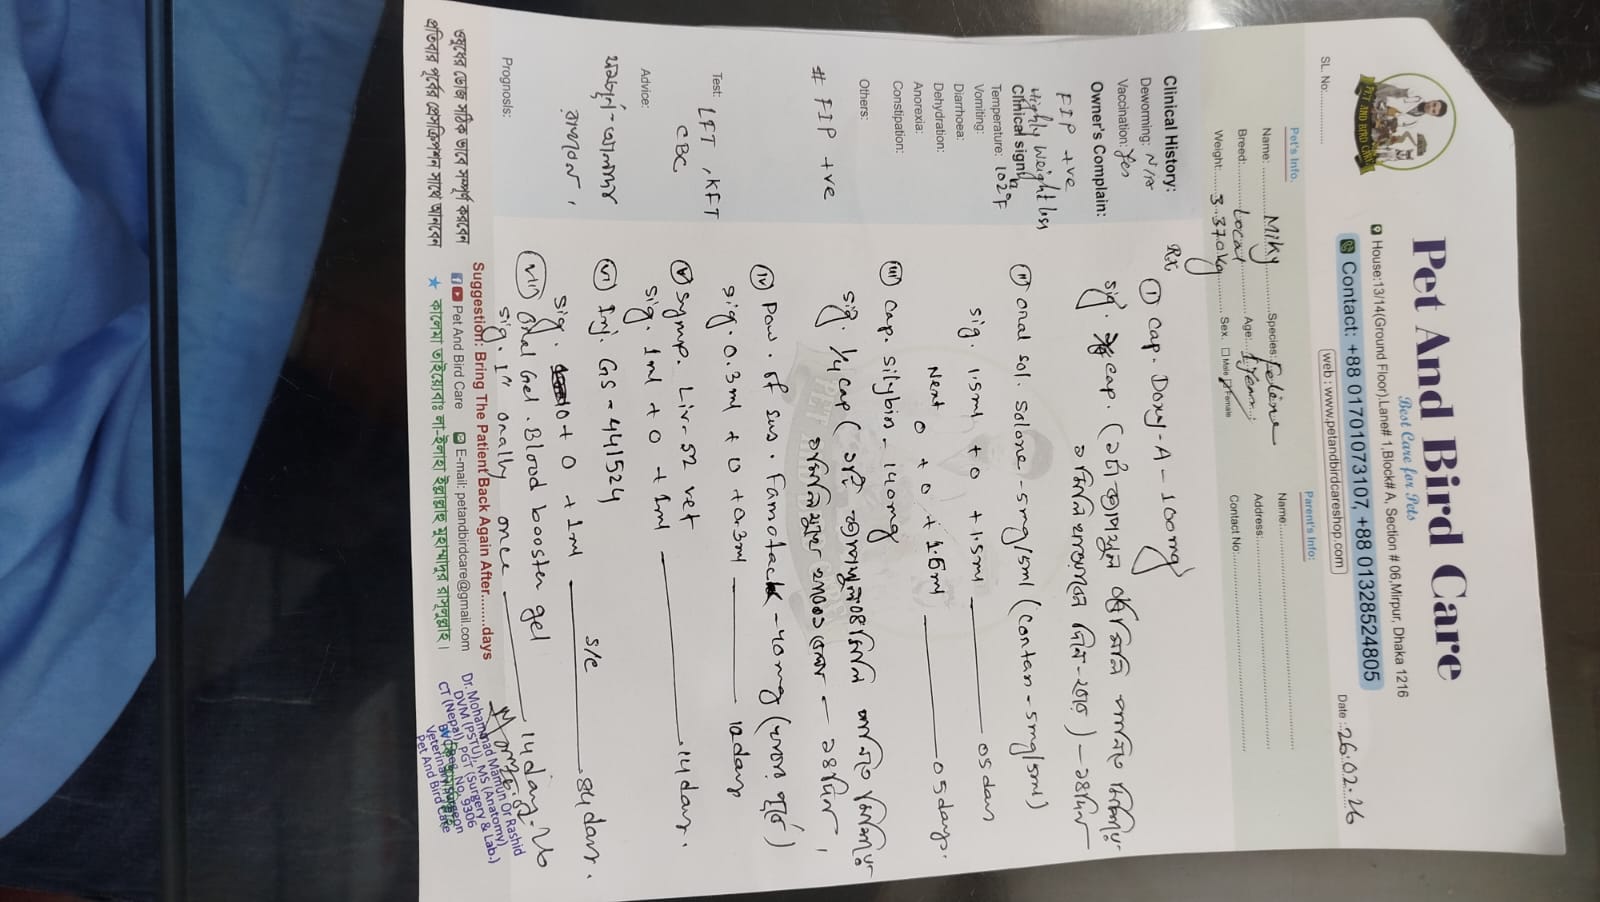 Pet And Bird Care
Best Care for Pets
House:13/14(Ground Floor),Lane# 1,Block# A, Section # 06,Mirpur, Dhaka 1216
Contact: +88 01701073107, +88 01328524805
web : www.petandbirdcareshop.com
PET AND BIRD CARE
SL. No:
Date : 26.02.26
Pet's Info.
Name: Miky Species: Feline
Breed: Local Age: 1 year
Weight: 3.370kg Sex. Male Female
Parent's Info:
Name:
Address:
Contact No:
Clinical History:
Deworming: N/A
Vaccination: Yes
Owner's Complain:
FIP +ve
Highly Weight loss
Clinical signs:
Temperature: 102°F
Vomiting:
Diarrhoea:
Dehydration:
Anorexia:
Constipation:
Others:
# FIP +ve
Test: LFT, KFT
CBC
Advice:
Prognosis:
Rx
(I) Cap. Doxy-A-100mg
sig. cap.
(II) Oral sol. Solone-5mg/5ml (contan-5mg/5ml)
sig. 1.5ml + 0 + 1.5ml 05 days
Next 0 + 0 + 1.5ml 05 days.
(III) Cap. Silybin-140mg
sig. 1/4 cap
(IV) Pow. of sus. Famotack-40mg
sig. 0.3ml + 0 + 0.3ml 10 days
(V) Syrup. Liv-52 vet
sig. 1ml + 0 + 1ml 14 days.
(VI) Inj. GS-441524
sig. 0 + 0 + 1ml s/c 84 days.
(VII) Oral Gel. Blood booster gel
sig. 1" orally once 14 days
Suggestion: Bring The Patient Back Again After........days
Pet And Bird Care E-mail: petandbirdcare@gmail.com
ওষুধের ডোজ সঠিক ভাবে সম্পূর্ণ করবেন
প্রতিবার পূর্বের প্রেসক্রিপশন সাথে আনবেন
কালেমা তাইয়্যেবাঃ লা-ইলাহা ইল্লাল্লাহু মুহাম্মাদুর রাসূলুল্লাহ।
Dr. Mohammad Mamun Or Rashid
DVM (PSTU), MS (Anatomy)
CT (Nepal), PGT (Surgery & Lab.)
BVC Reg. No. 9306
Veterinary Surgeon
Pet And Bird Care